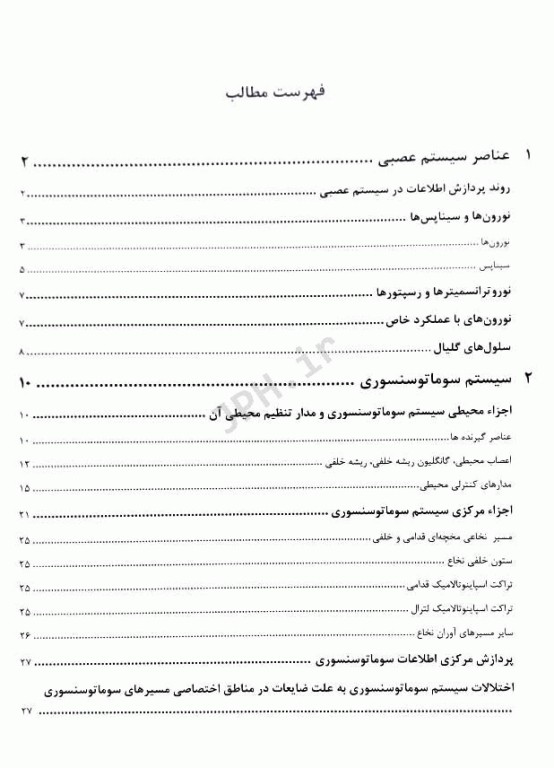 فهرست مطالب
۱ عناصر سیستم عصبی ........ ۲
روند پردازش اطلاعات در سیستم عصبی ........ ۲
نورون‌ها و سیناپس‌ها ........ ۳
نورون‌ها ........ ۳
سیناپس ........ ۵
نوروترانسمیترها و رسپتورها ........ ۷
نورون‌های با عملکرد خاص ........ ۷
سلول‌های گلیال ........ ۸
۲ سیستم سوماتوسنسوری ........ ۱۰
اجزاء محیطی سیستم سوماتوسنسوری و مدار تنظیم محیطی آن ........ ۱۰
عناصر گیرنده ها ........ ۱۰
اعصاب محیطی، گانگلیون ریشه خلفی، ریشه خلفی ........ ۱۲
مدارهای کنترلی محیطی ........ ۱۵
اجزاء مرکزی سیستم سوماتوسنسوری ........ ۲۱
مسیر نخاعی مخچه‌ای قدامی و خلفی ........ ۲۵
ستون خلفی نخاع ........ ۲۵
تراکت اسپاینوتالامیک قدامی ........ ۲۵
تراکت اسپاینوتالامیک لترال ........ ۲۵
سایر مسیرهای آوران نخاع ........ ۲۶
پردازش مرکزی اطلاعات سوماتوسنسوری ........ ۲۷
اختلالات سیستم سوماتوسنسوری به علت ضایعات در مناطق اختصاصی مسیرهای سوماتوسنسوری
........ ۲۷
JPH.ir